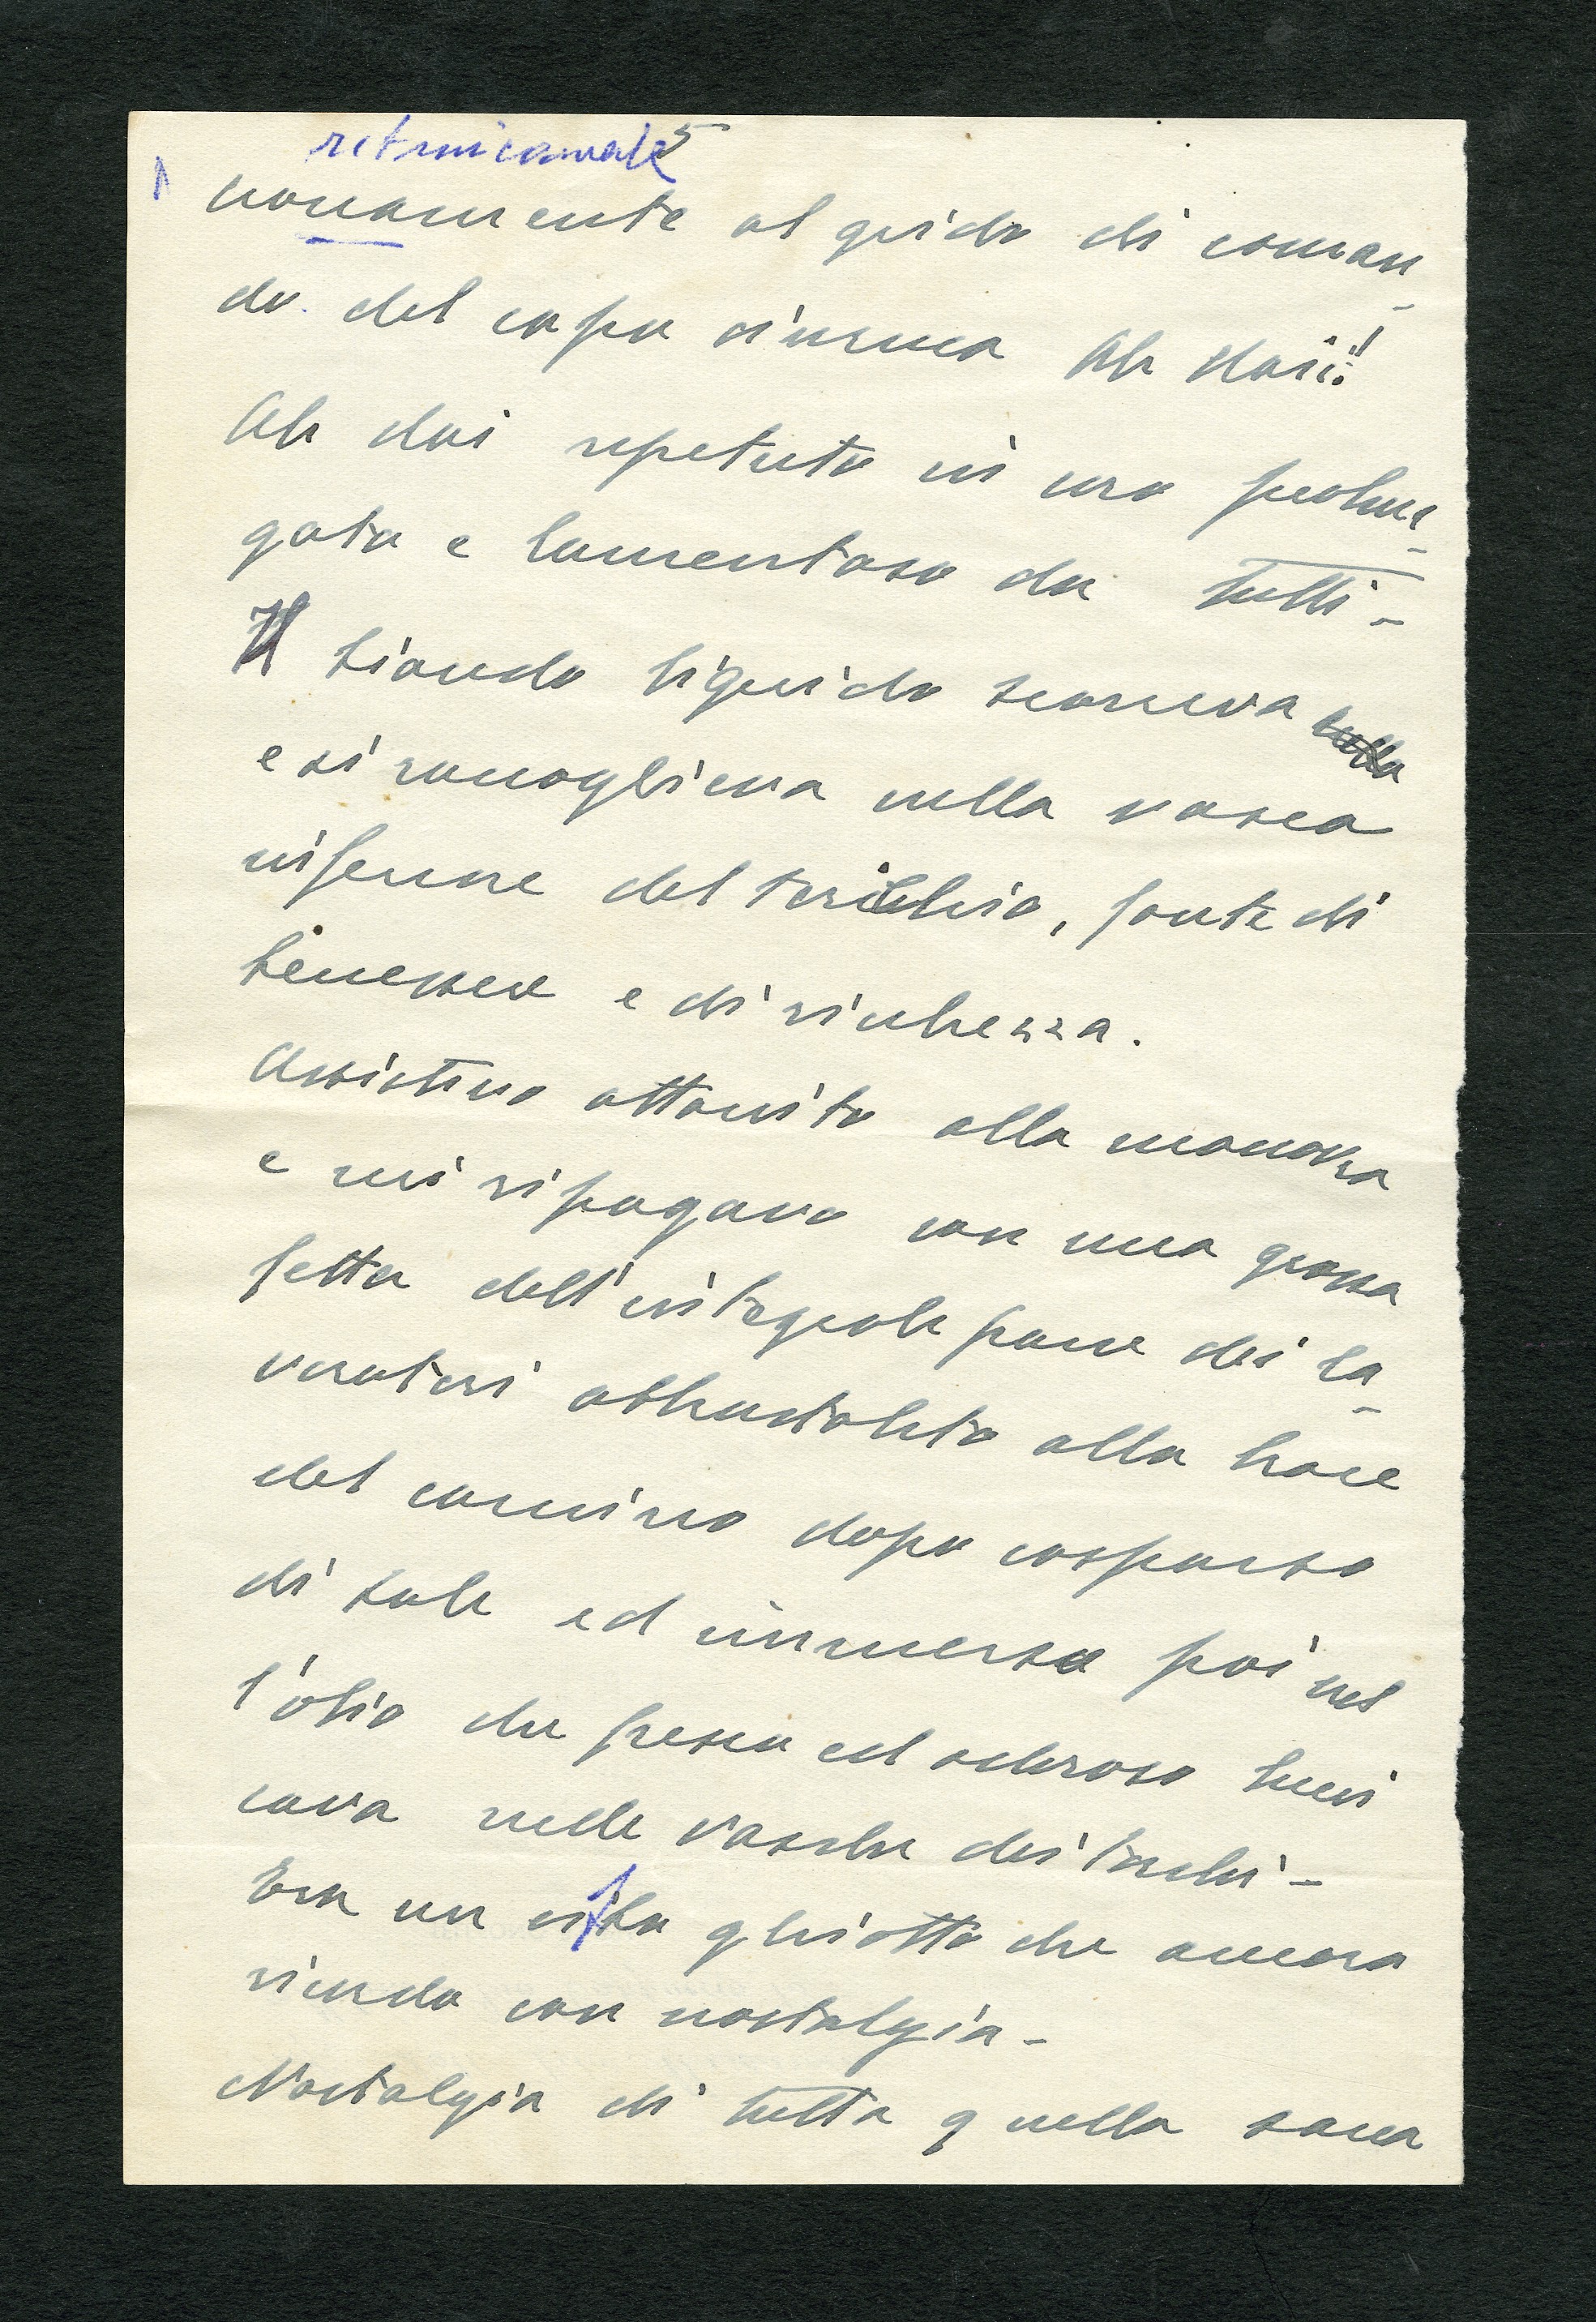 5
ritmicamente
nonamente al grido di coman-
do del capo ciurma Ah dai!!
Ah dai repetuto in coro prolun-
gato e lamentoso da tutti-
Il biondo liquido scorreva
e si raccoglieva nella vasca
inferiore del torchio, fonte di
benessere e di ricchezza.
Assistevo attonito alla manovra
e mi ripagavo con una grossa
fetta dell'integrale pane dei la-
voratori abbrustolito alla brace
del camino dopo cosparso
di sale ed immerso poi nel
l'olio che fresco ed odoroso luci
cava nelle vasche dei torchi-
Era un cibo ghiotto che ancora
ricordo con nostalgia-
Nostalgia di tutta quella sana